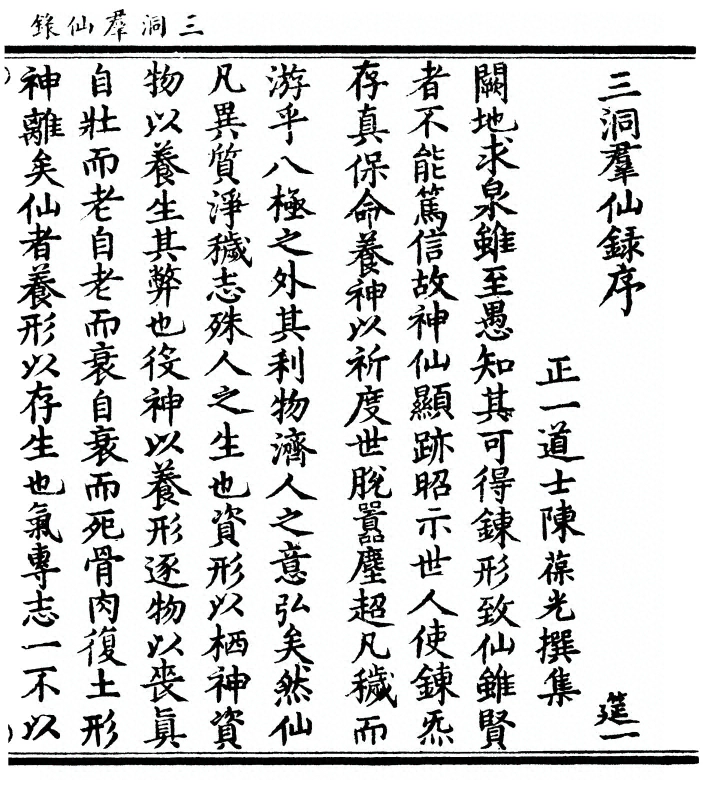 三洞羣仙錄
三洞羣仙録序
正一道士陳葆光撰集
筵一
闕地求泉雖至愚知其可得鍊形致仙雖賢
者不能篤信故神仙顯跡昭示世人使鍊炁
存真保命養神以祈度世脫囂塵超凡穢而
游乎八極之外其利物濟人之意弘矣然仙
凡異質淨穢志殊人之生也資形以栖神資
物以養生其弊也役神以養形逐物以喪眞
自壯而老自老而衰自衰而死骨肉復土形
神離矣仙者養形以存生也氣專志一不以